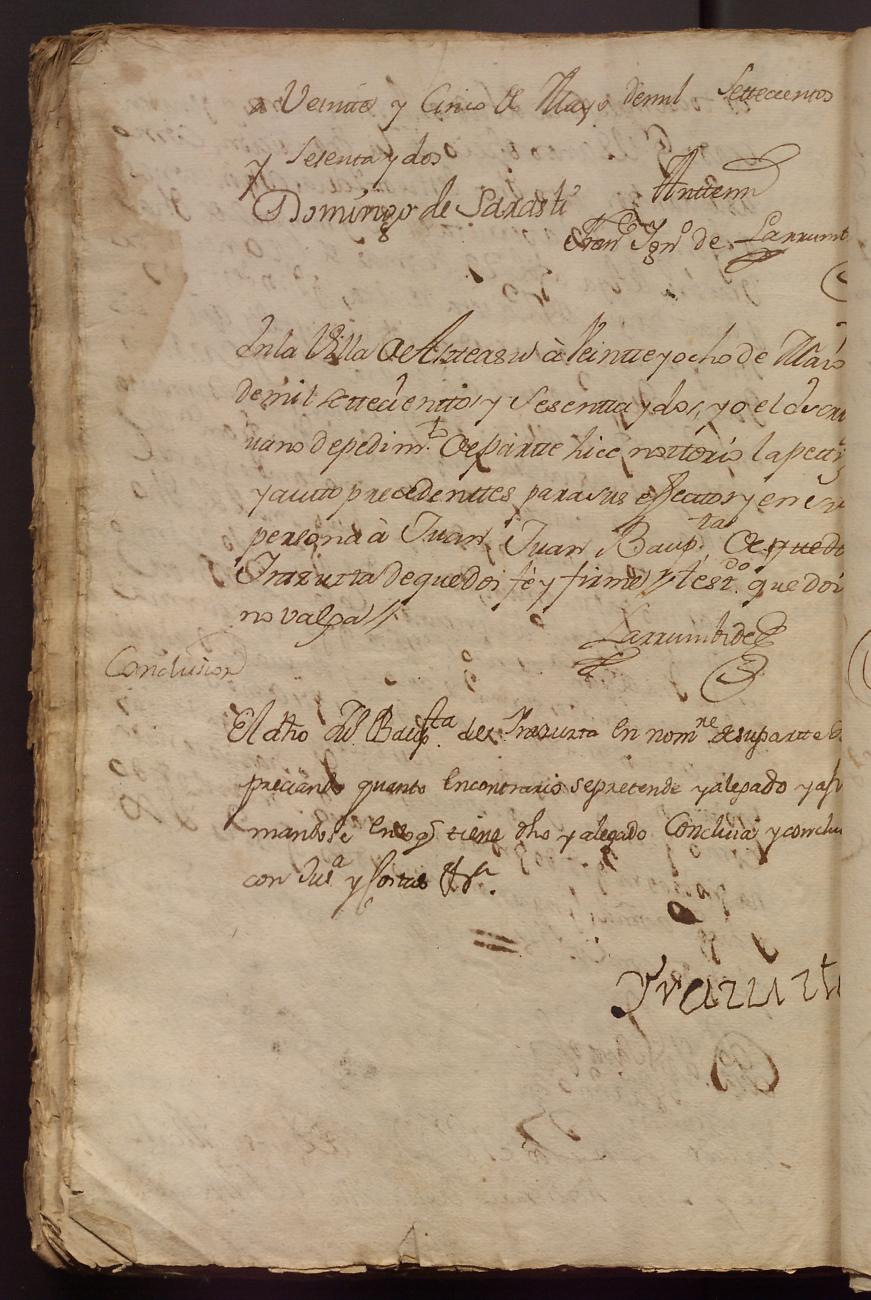 a Veinte y Cinco de Mayo demil Settecientos
y Sesenta y dos
Domingo de Sarasti Anttemi
Fran.co Ign.o de Larrumb
En la Villa de Azteasu à Veintte y ocho de Maio
de mil settecienttos y Sesentta y dos, yo el escri
uano de pedim.to de partte hice nottorio la petiz
y autto precedenttes para sus efectos y en su
persona à Juan Juan Baup.ta de quedo
Irazuzta de que doi fe y firme, y test.do que doi
no valga //
Larrumbide
Conclusion
El dho Juan Baup.ta de Irazuzta en nom.re de su partte
preciando quanto en contrario se pretende y alegado y afir
mandose en lo q.e tiene dho y alegado Concluia y conclu
con Jus.a y Costas &.a
=
Yrazuzta